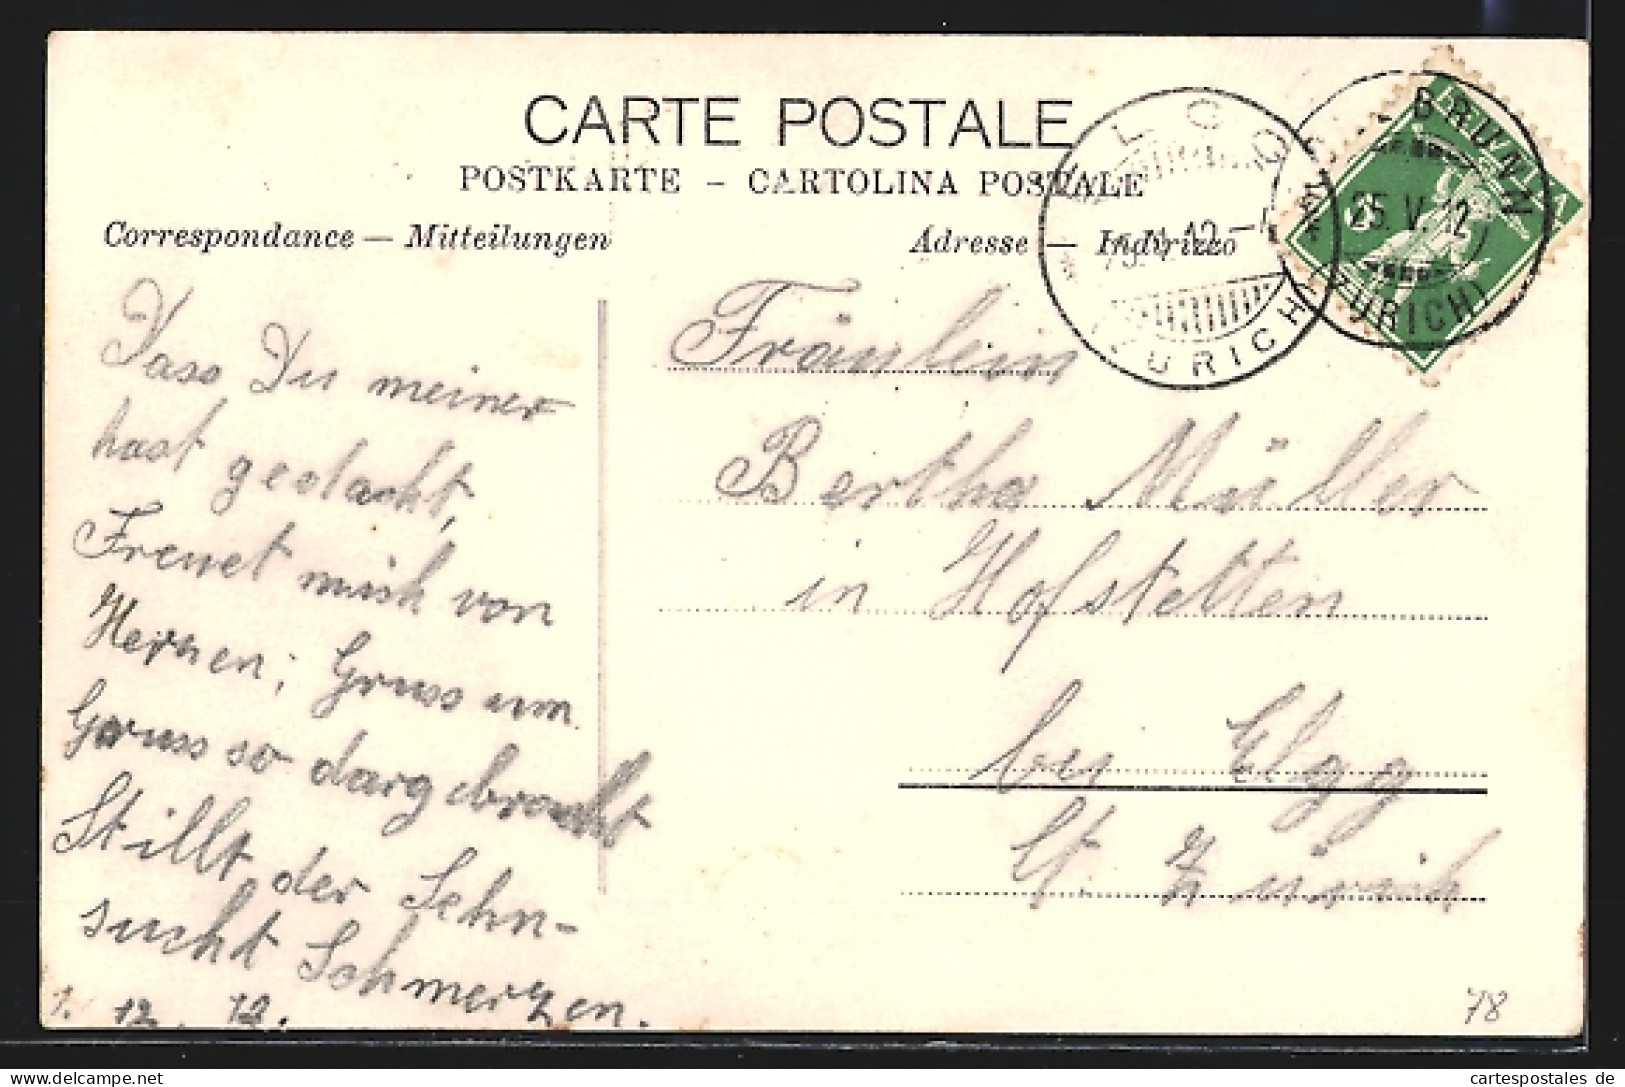 CARTE POSTALE
POSTKARTE – CARTOLINA POSTALE
Correspondance — Mitteilungen
Adresse — Indirizzo
BRUNN
25. V. 12
(ZÜRICH)
ZÜRICH
HELVETIA
Dass Du meiner
hast gedacht,
Freuet mich von
Herzen; Gruss um
Gruss so dargebracht
Stillt der Sehn-
sucht Schmerzen.
1. 12. 12.
Fräulein
Bertha Müller
in Hofstetten
bei Elgg
Ct. Zürich
78
cartespostales de